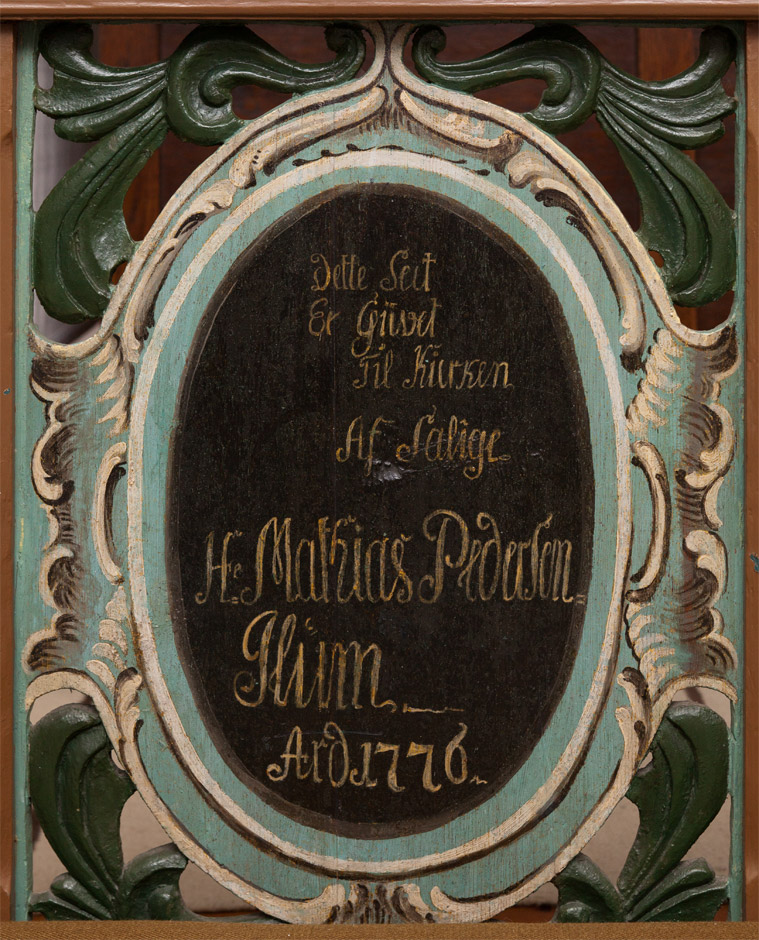 Dette Seit
Er Givet
Til Kürken
Af Salige
He Mathias Pedersen
Ilüm
Ard 1776